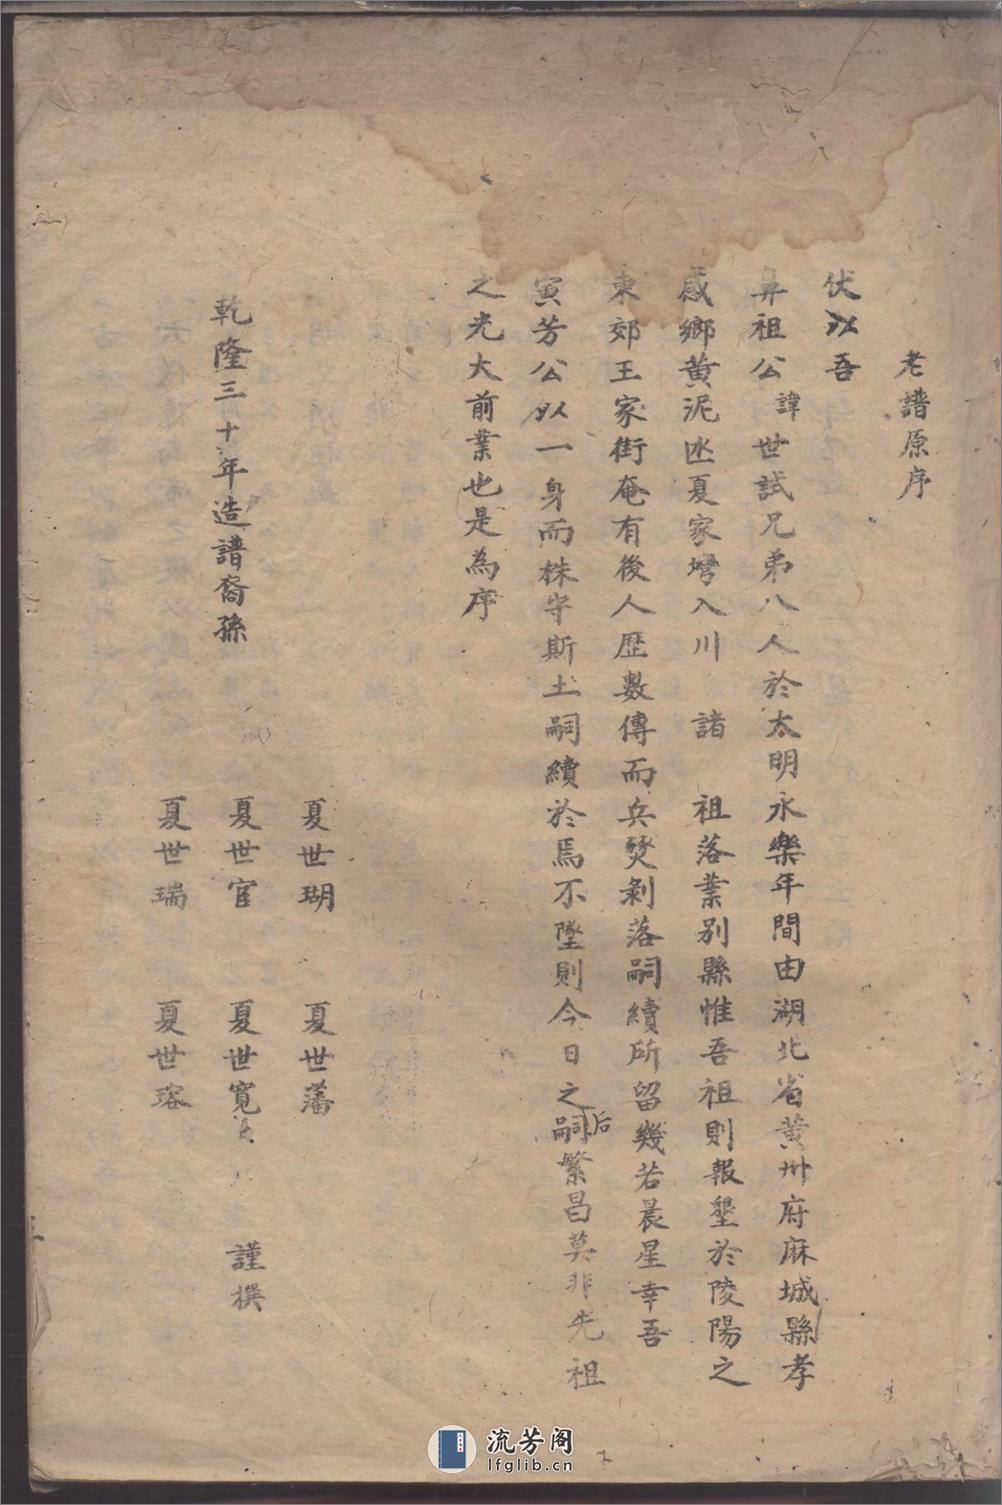 老譜原序
伏以吾
鼻祖公諱世試兄弟八人於太明永樂年間由湖北省黃州府麻城縣孝
感鄉黃泥凼夏家塆入川 諸 祖落業别縣惟吾祖則報墾於陵陽之
東郊王家街奄有後人歴數傳而兵燹剝落嗣續所留幾若晨星幸吾
寅芳公以一身而株守斯土嗣續於焉不墜則今日之嗣后繁昌莫非先祖
之光大前業也是為序
乾隆三十年造譜裔孫
夏世瑚 夏世藩
夏世官 夏世寬 謹撰
夏世瑞 夏世瑢
流芳阁
lfglib.cn